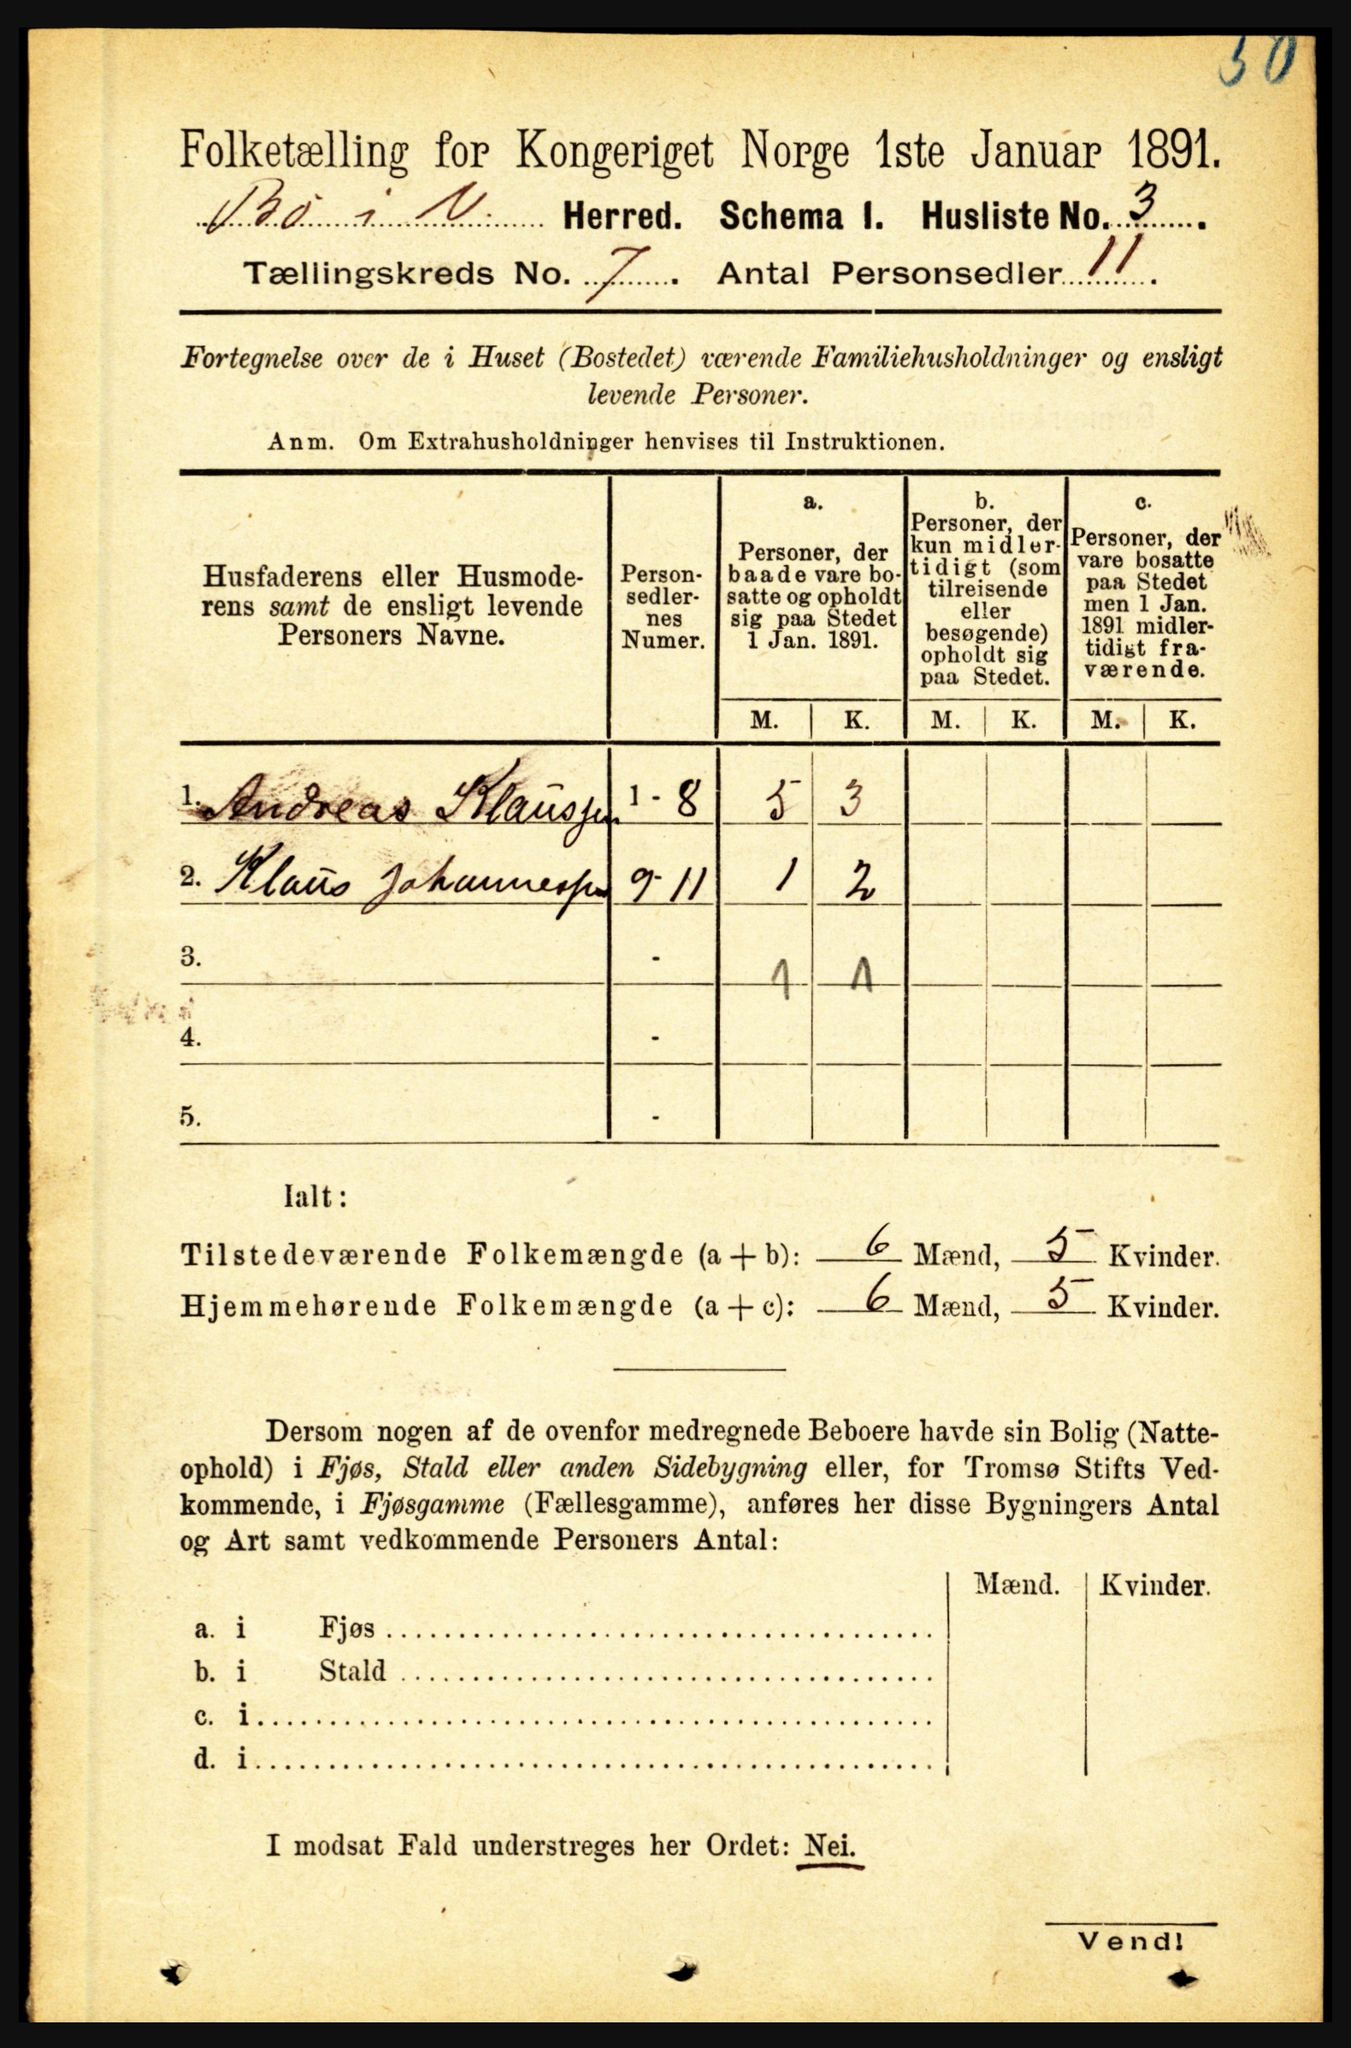 50
Folketælling for Kongeriget Norge 1ste Januar 1891.
Bö i V. Herred. Schema I. Husliste No. 3.
Tællingskreds No. 7. Antal Personsedler 11.
Fortegnelse over de i Huset (Bostedet) værende Familiehusholdninger og ensligt
levende Personer.
Anm. Om Extrahusholdninger henvises til Instruktionen.
Husfaderens eller Husmode-
rens samt de ensligt levende
Personers Navne.
Person-
sedler-
nes
Numer.
a.
Personer, der
baade vare bo-
satte og opholdt
sig paa Stedet
1 Jan. 1891.
b.
Personer, der
kun midler-
tidigt (som
tilreisende
eller
besøgende)
opholdt sig
paa Stedet.
c.
Personer, der
vare bosatte
paa Stedet
men 1 Jan.
1891 midler-
tidigt fra-
værende.
M. K. M. K. M. K.
1. Andreas Klaussen 1 - 8 5 3
2. Klaus Johannessen 9 - 11 1 2
3. - 1 1
4. -
5. -
Ialt:
Tilstedeværende Folkemængde (a + b): 6 Mænd, 5 Kvinder.
Hjemmehørende Folkemængde (a + c): 6 Mænd, 5 Kvinder.
Dersom nogen af de ovenfor medregnede Beboere havde sin Bolig (Natte-
ophold) i Fjøs, Stald eller anden Sidebygning eller, for Tromsø Stifts Ved-
kommende, i Fjøsgamme (Fællesgamme), anføres her disse Bygningers Antal
og Art samt vedkommende Personers Antal:
Mænd. Kvinder.
a. i Fjøs
b. i Stald
c. i
d. i
I modsat Fald understreges her Ordet: Nei.
Vend!